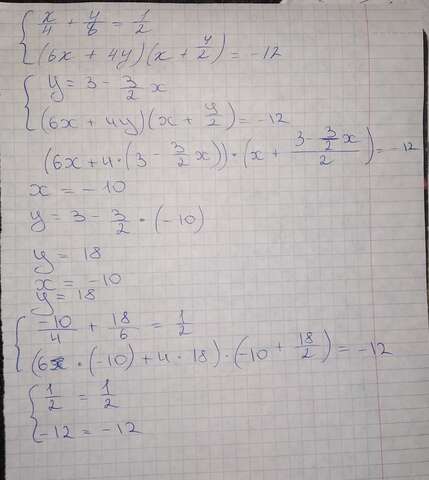 { x/4 + y/6 = 1/2
(6x + 4y)(x + y/2) = -12
{ y = 3 - 3/2 x
(6x + 4y)(x + y/2) = -12
(6x + 4·(3 - 3/2 x))·(x + (3 - 3/2 x)/2) = -12
x = -10
y = 3 - 3/2 · (-10)
y = 18
x = -10
y = 18
{ -10/4 + 18/6 = 1/2
(6 · (-10) + 4 · 18)·(-10 + 18/2) = -12
{ 1/2 = 1/2
-12 = -12